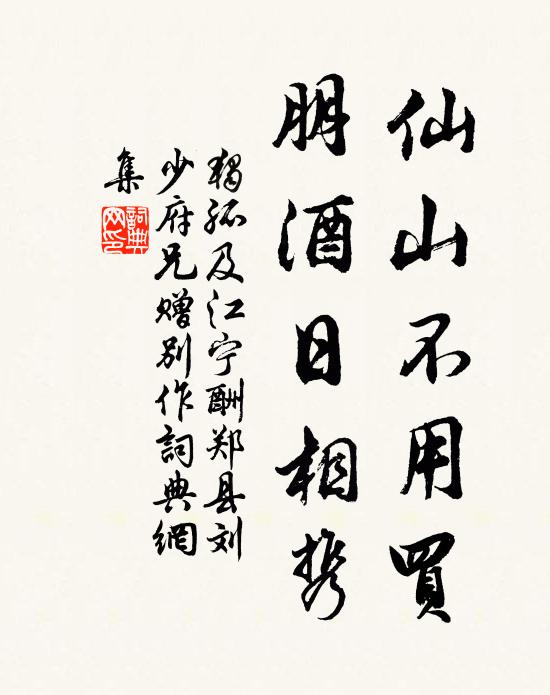 仙山不用買
朋酒日相携
獨孤及江宁酬郑县刘
少府兄赠别作詞典網
集
詞典網印